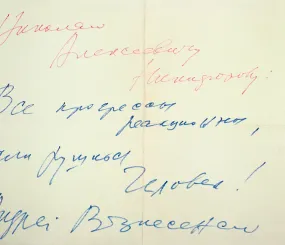 Николаю
Алексеевичу
Никифорову:
Все прогрессы
реакционны,
если рушится
Человек!
Андрей Вознесенский